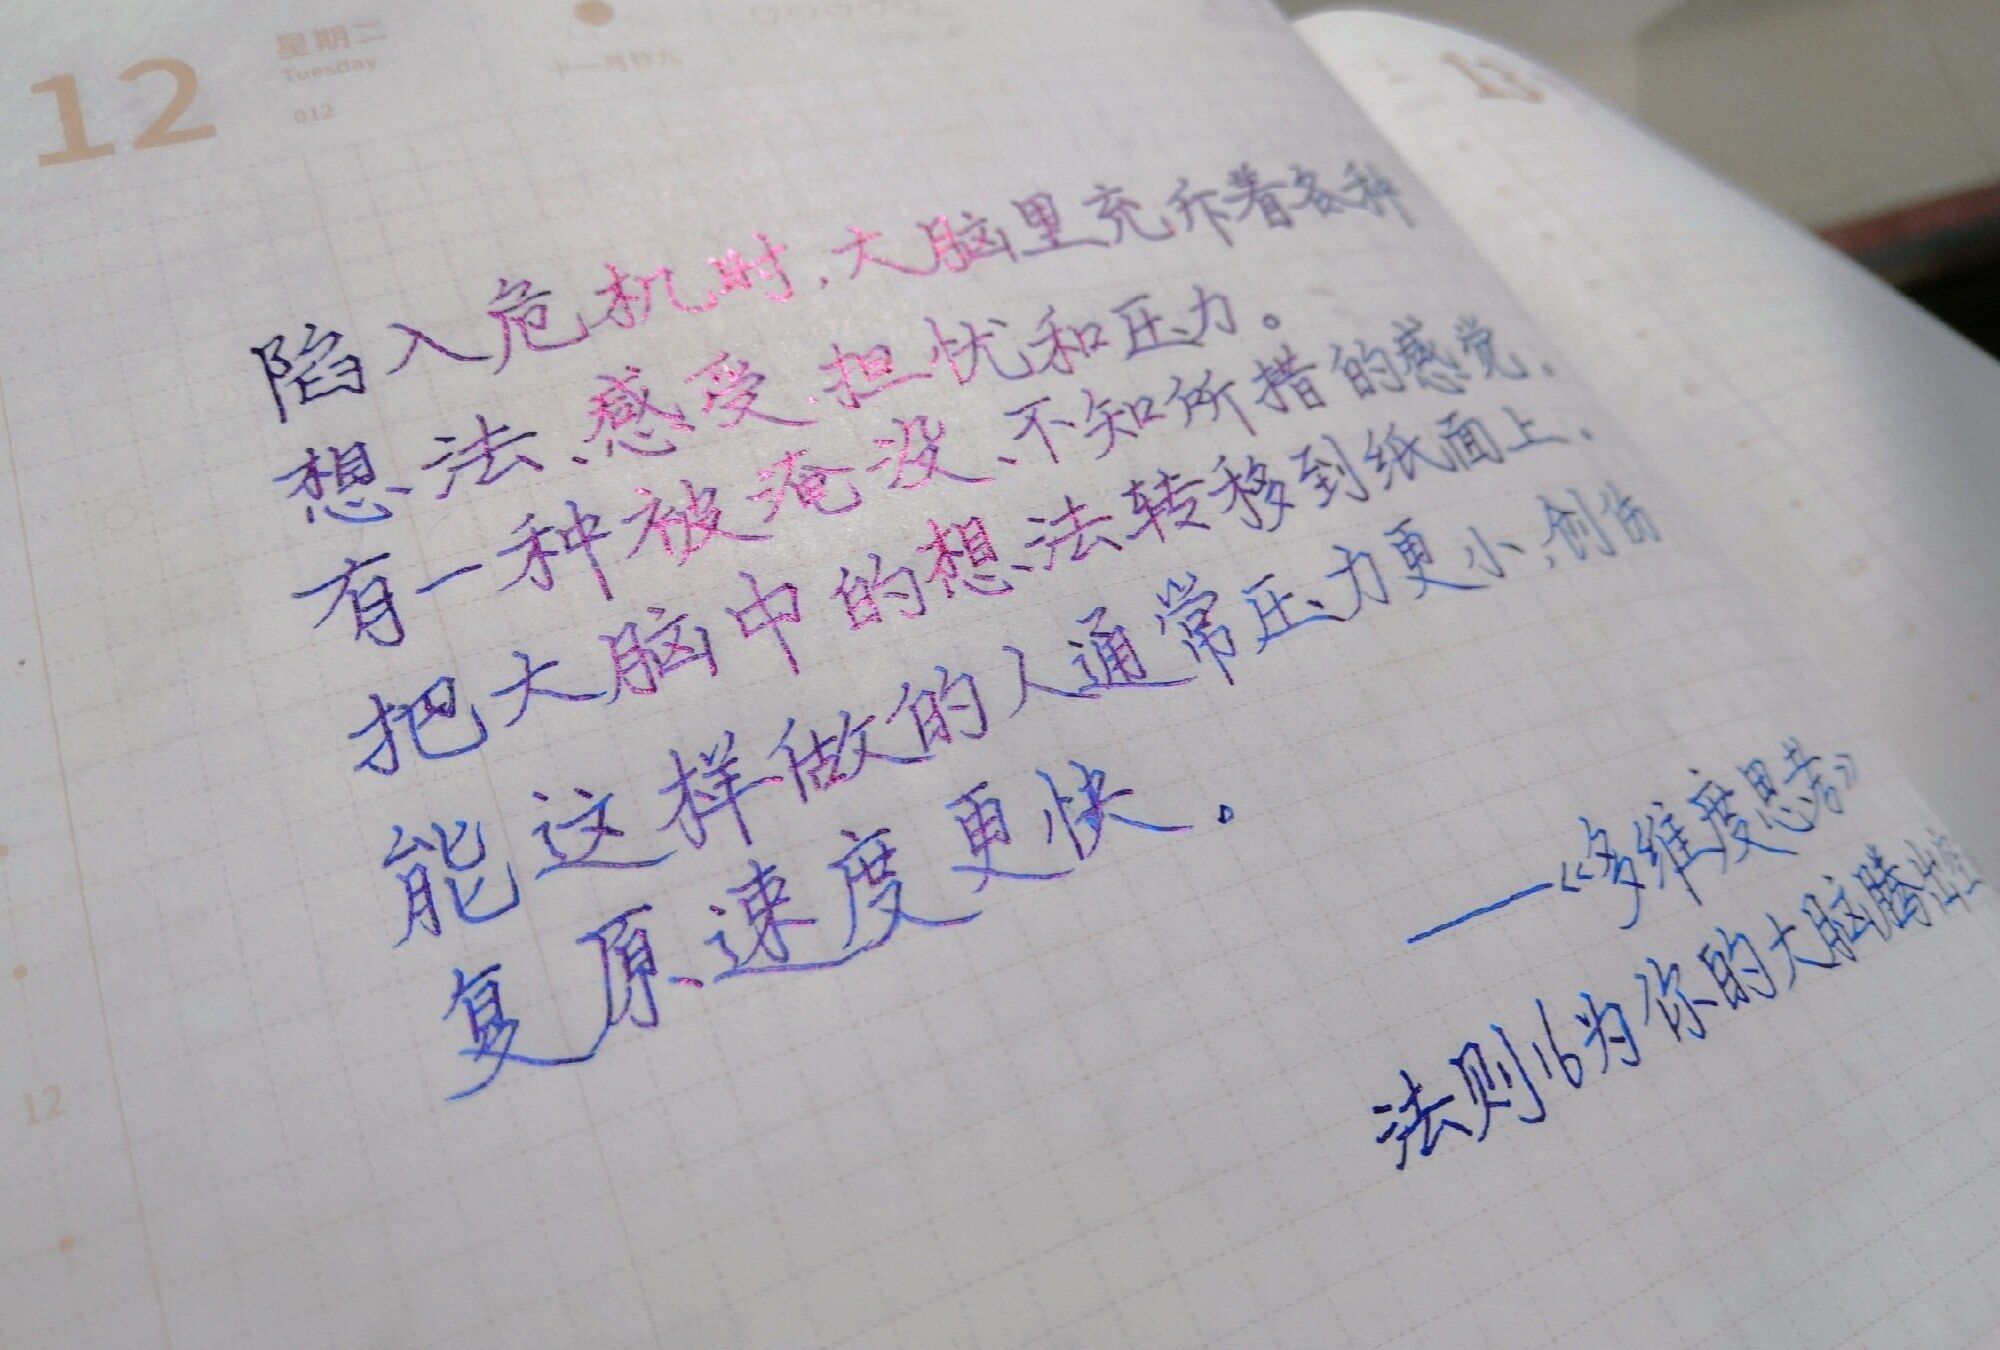 12
星期二
Tuesday
012
十一月廿九
13
陷入危机时，大脑里充斥着各种
想法、感受、担忧和压力。
有一种被淹没、不知所措的感觉，
把大脑中的想法转移到纸面上，
能这样做的人通常压力更小，创伤
复原速度更快。
——《多维度思考》
法则16为你的大脑腾出
12